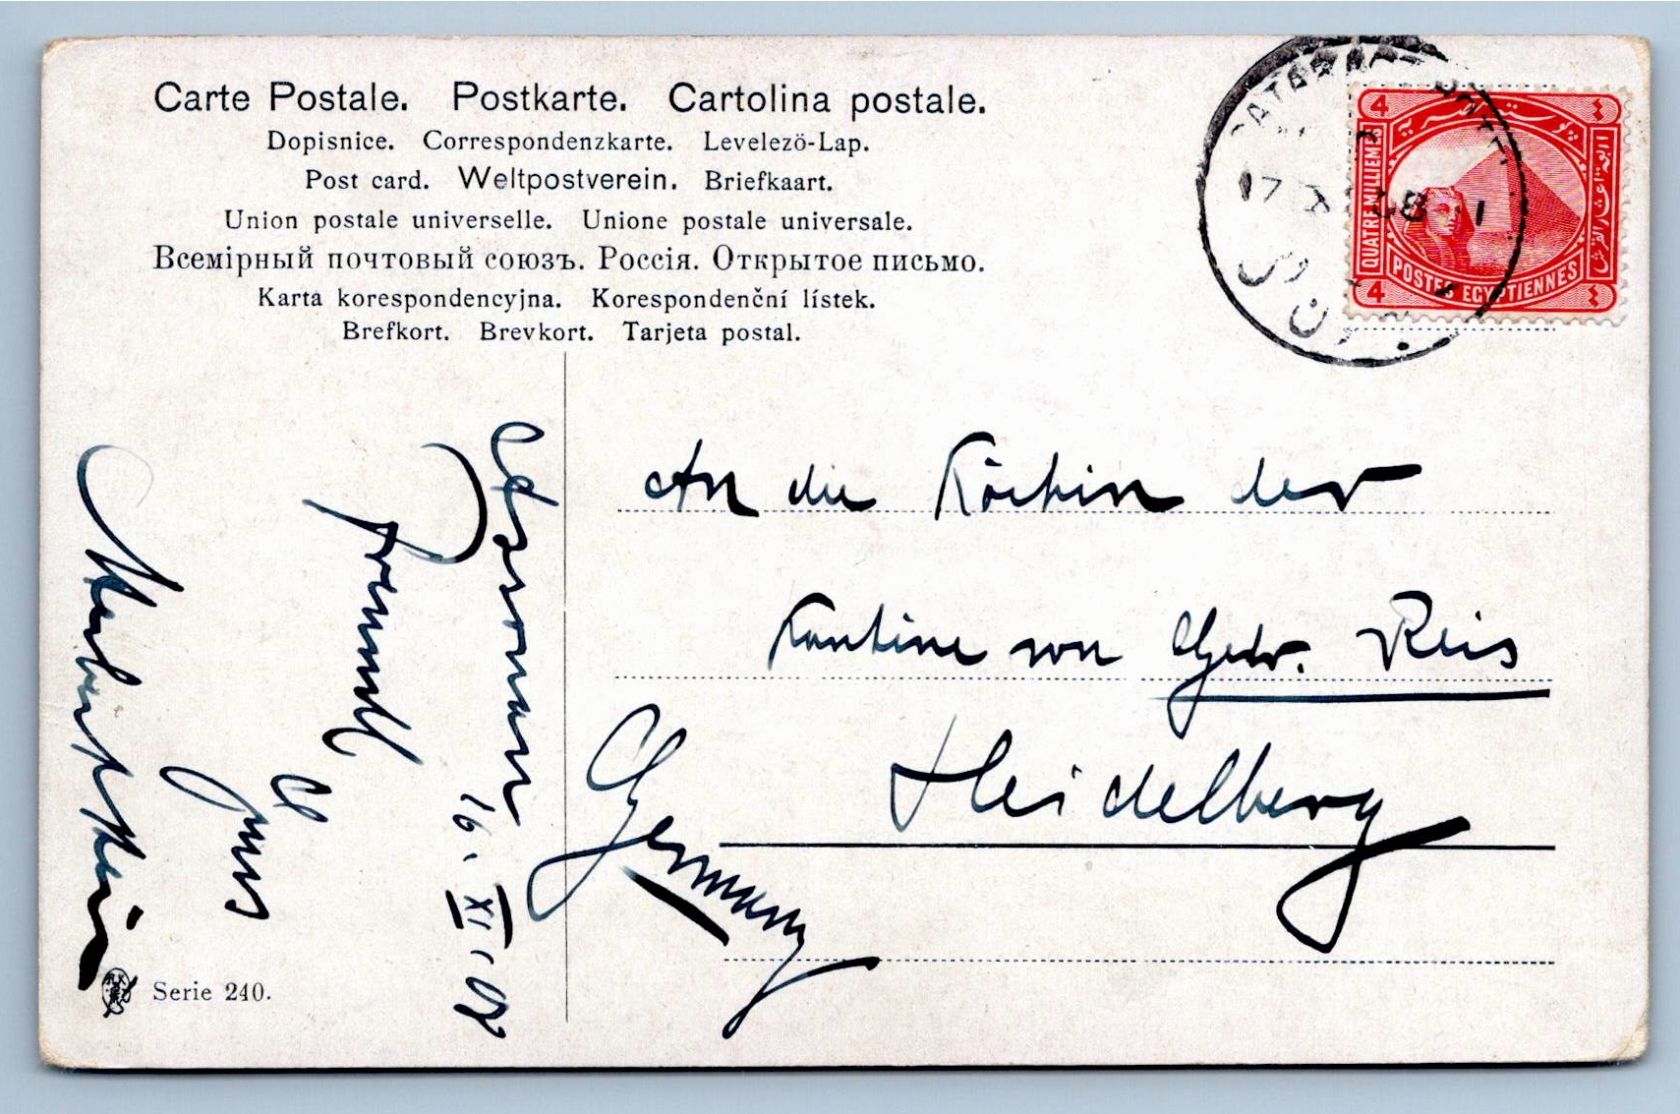 Carte Postale. Postkarte. Cartolina postale.
Dopisnice. Correspondenzkarte. Levelezö-Lap.
Post card. Weltpostverein. Briefkaart.
Union postale universelle. Unione postale universale.
Всемірный почтовый союзъ. Россія. Открытое письмо.
Karta korespondencyjna. Korespondenční lístek.
Brefkort. Brevkort. Tarjeta postal.
4 4
QUATRE MILLIEMES
POSTES EGYPTIENNES
4 ٤
17 X 08
An die Köchin der
Kantine von Gebr. Reis
Heidelberg
Germany
Assouan
16. XI. 08
Gruss
Serie 240.